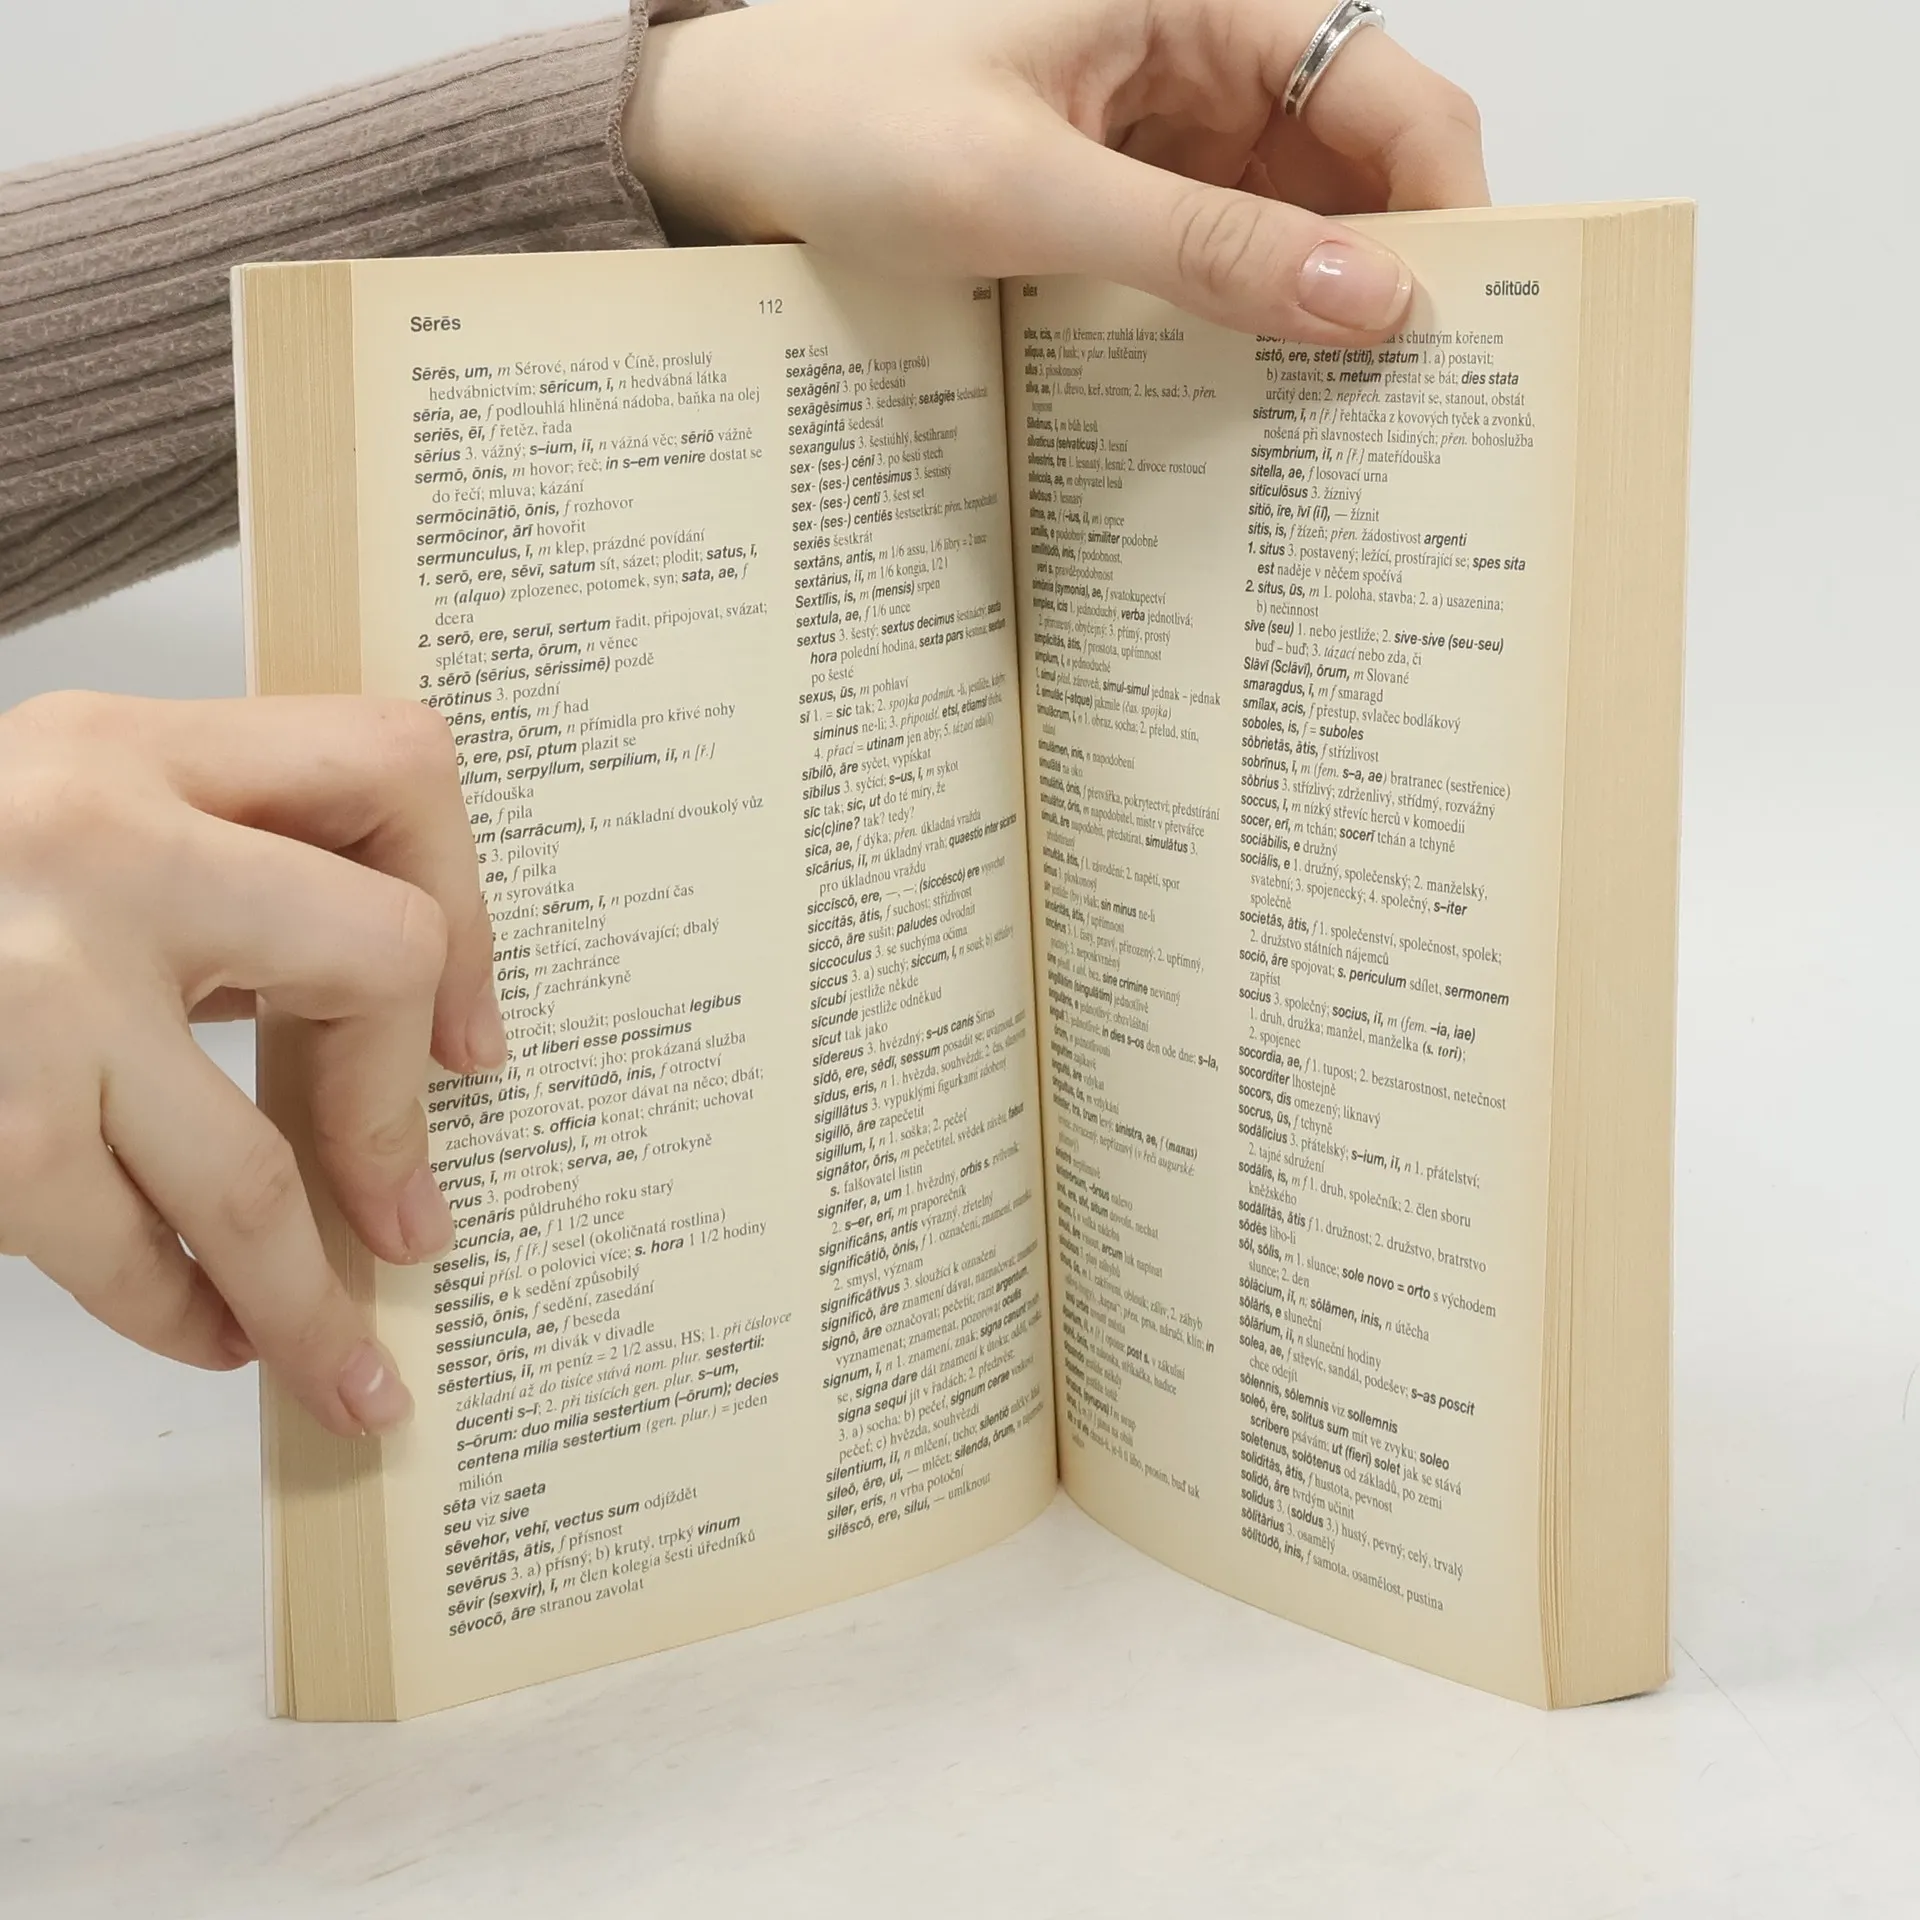 Sērēs
112
silēscō
Sērēs, um, m Sérové, národ v Číně, proslulý
hedvábnictvím; sēricum, ī, n hedvábná látka
sēria, ae, f podlouhlá hliněná nádoba, baňka na olej
seriēs, ēī, f řetěz, řada
sērius 3. vážný; s–ium, iī, n vážná věc; sēriō vážně
sermō, ōnis, m hovor; řeč; in s–em venire dostat se
do řečí; mluva; kázání
sermōcinātiō, ōnis, f rozhovor
sermōcinor, ārī hovořit
sermunculus, ī, m klep, prázdné povídání
1. serō, ere, sēvī, satum sít, sázet; plodit; satus, ī,
m (alquo) zplozenec, potomek, syn; sata, ae, f
dcera
2. serō, ere, seruī, sertum řadit, připojovat, svázat;
splétat; serta, ōrum, n věnec
3. sērō (sērius, sērissimē) pozdě
sērōtinus 3. pozdní
pēns, entis, m f had
erastra, ōrum, n přímidla pro křivé nohy
ō, ere, psī, ptum plazit se
ullum, serpyllum, serpilium, iī, n [ř.]
eřídouška
ae, f pila
um (sarrācum), ī, n nákladní dvoukolý vůz
s 3. pilovitý
ae, f pilka
ī, n syrovátka
pozdní; sērum, ī, n pozdní čas
s e zachranitelný
antis šetřící, zachovávající; dbalý
ōris, m zachránce
īcis, f zachránkyně
otrocký
otročit; sloužit; poslouchat legibus
s, ut liberi esse possimus
servitium, iī, n otroctví; jho; prokázaná služba
servitūs, ūtis, f, servitūdō, inis, f otroctví
servō, āre pozorovat, pozor dávat na něco; dbát;
zachovávat; s. officia konat; chránit; uchovat
servulus (servolus), ī, m otrok
ervus, ī, m otrok; serva, ae, f otrokyně
rvus 3. podrobený
scenāris půldruhého roku starý
scuncia, ae, f 1 1/2 unce
seselis, is, f [ř.] sesel (okoličnatá rostlina)
sēsqui přísl. o polovici více; s. hora 1 1/2 hodiny
sessilis, e k sedění způsobilý
sessiō, ōnis, f sedění, zasedání
sessiuncula, ae, f beseda
sessor, ōris, m divák v divadle
sēstertius, iī, m peníz = 2 1/2 assu, HS; 1. při číslovce
základní až do tisíce stává nom. plur. sestertii:
ducenti s–ī; 2. při tisících gen. plur. s–um,
s–ōrum: duo milia sestertium (–ōrum); decies
centena milia sestertium (gen. plur.) = jeden
milión
sēta viz saeta
seu viz sive
sēvehor, vehī, vectus sum odjíždět
sevēritās, ātis, f přísnost
sevērus 3. a) přísný; b) krutý, trpký vinum
sēvir (sexvir), ī, m člen kolegia šesti úředníků
sēvocō, āre stranou zavolat
sex šest
sexāgēna, ae, f kopa (grošů)
sexāgēnī 3. po šedesáti
sexāgēsimus 3. šedesátý; sexāgiēs šedesátkrát
sexāgintā šedesát
sexangulus 3. šestiúhlý, šestihranný
sex- (ses-) cēnī 3. po šesti stech
sex- (ses-) centēsimus 3. šestistý
sex- (ses-) centī 3. šest set
sex- (ses-) centiēs šestsetkrát; přen. bezpočtukrát
sexiēs šestkrát
sextāns, antis, m 1/6 assu, 1/6 libry = 2 unce
sextārius, iī, m 1/6 kongia, 1/2 l
Sextīlis, is, m (mensis) srpen
sextula, ae, f 1/6 unce
sextus 3. šestý; sextus decimus šestnáctý; sexta
hora polední hodina, sexta pars šestina; sextum
po šesté
sexus, ūs, m pohlaví
sī 1. = sic tak; 2. spojka podmín. -li, jestliže, kdyby;
siminus ne-li; 3. připoušť. etsi, etiamsi třebas,
4. přací = utinam jen aby; 5. tázací zda(li)
sībilō, āre syčet, vypískat
sībilus 3. syčící; s–us, ī, m sykot
sīc tak; sic, ut do té míry, že
sic(c)ine? tak? tedy?
sīca, ae, f dýka; přen. úkladná vražda
sīcārius, iī, m úkladný vrah; quaestio inter sicarios
pro úkladnou vraždu
siccīscō, ere, —, —; (siccēscō) ere vysychat
siccitās, ātis, f suchost; střízlivost
siccō, āre sušit; paludes odvodnit
siccoculus 3. se suchýma očima
siccus 3. a) suchý; siccum, ī, n souš; b) střízlivý
sīcubi jestliže někde
sīcunde jestliže odněkud
sīcut tak jako
sīdereus 3. hvězdný; s–us canis Sírius
sīdō, ere, sēdī, sessum posadit se; uváznout,
sīdus, eris, n 1. hvězda, souhvězdí; 2. čas,
sigillātus 3. vypuklými figurkami zdobený
sigillō, āre zapečetit
sigillum, ī, n 1. soška; 2. pečeť
signātor, ōris, m pečetitel, svědek závěti; falsus
s. falšovatel listin
signifer, a, um 1. hvězdný, orbis s. zvířetník;
2. s–er, erī, m praporečník
significāns, antis výrazný, zřetelný
significātiō, ōnis, f 1. označení, znamení,
2. smysl, význam
significātīvus 3. sloužící k označení
significō, āre znamení dávat, naznačovat,
signō, āre označovat; pečetit; razit argentum,
vyznamenat; znamenat, pozorovat oculis
signum, ī, n 1. znamení, znak; signa canunt
se, signa dare dát znamení k útoku; oddíl,
signa sequi jít v řadách; 2. předzvěst;
3. a) socha; b) pečeť, signum cerae vosková
pečeť; c) hvězda, souhvězdí
silentium, iī, n mlčení, ticho; silentiō mlčky;
sileō, ēre, uī, — mlčet; silenda, ōrum, n tajemství
siler, eris, n vrba potoční
silēscō, ere, siluī, — umlknout
silex
sōlitūdō
silex, icis, m (f) křemen; ztuhlá láva; skála
siliqua, ae, f lusk; v plur. luštěniny
sīlus 3. ploskonosý
silva, ae, f 1. dřevo, keř, strom; 2. les, sad; 3. přen.
Silvānus, ī, m bůh lesů
silvāticus (selvaticus) 3. lesní
silvestris, tre 1. lesnatý, lesní; 2. divoce rostoucí
silvicola, ae, m obyvatel lesů
silvōsus 3. lesnatý
sīmia, ae, f (–ius, iī, m) opice
similis, e podobný; similiter podobně
similitūdō, inis, f podobnost,
veri s. pravděpodobnost
simōnia (symonia), ae, f svatokupectví
simplex, icis 1. jednoduchý, verba jednotlivá;
2. přirozený, obyčejný; 3. přímý, prostý
simplicitās, ātis, f prostota, upřímnost
simplum, ī, n jednoduché
1. simul přísl. zároveň; simul-simul jednak – jednak
2. simulāc (–atque) jakmile (čas. spojka)
simulācrum, ī, n 1. obraz, socha; 2. přelud, stín,
simulāmen, inis, n napodobení
simulātē na oko
simulātiō, ōnis, f přetvářka, pokrytectví; předstírání
simulātor, ōris, m napodobitel, mistr v přetvářce
simulō, āre napodobit, předstírat, simulātus 3.
simultās, ātis, f 1. závodění; 2. napětí, spor
sīmus 3. ploskonosý
sīn jestliže (by) však; sin minus ne-li
sincēritās, ātis, f upřímnost
sincērus 3. 1. čistý, pravý, přirozený; 2. upřímný,
sine předl. s abl. bez, sine crimine nevinný
singillātim (singulātim) jednotlivě
singulāris, e jednotlivý; obzvláštní
singulī 3. jednotliví; in dies s–os den ode dne; s–ia,
ōrum, n jednotlivosti
singultim vzlykavě
singultō, āre vzlykat
singultus, ūs, m vzlykání
sinister, tra, trum levý; sinistra, ae, f (manus)
siser, a s chutným kořenem
sistō, ere, stetī (stitī), statum 1. a) postavit;
b) zastavit; s. metum přestat se bát; dies stata
určitý den; 2. nepřech. zastavit se, stanout, obstát
sīstrum, ī, n [ř.] řehtačka z kovových tyček a zvonků,
nošená při slavnostech Isidiných; přen. bohoslužba
sisymbrium, iī, n [ř.] mateřídouška
sitella, ae, f losovací urna
sitīculōsus 3. žíznivý
sitiō, īre, īvī (iī), — žíznit
sitis, is, f žízeň; přen. žádostivost argenti
1. situs 3. postavený; ležící, prostírající se; spes sita
est naděje v něčem spočívá
2. situs, ūs, m 1. poloha, stavba; 2. a) usazenina;
b) nečinnost
sīve (seu) 1. nebo jestliže; 2. sive-sive (seu-seu)
buď – buď; 3. tázací nebo zda, či
Slāvī (Sclāvī), ōrum, m Slované
smaragdus, ī, m f smaragd
smīlax, acis, f přestup, svlačec bodlákový
soboles, is, f = suboles
sōbrietās, ātis, f střízlivost
sobrīnus, ī, m (fem. s–a, ae) bratranec (sestřenice)
sōbrius 3. střízlivý; zdrženlivý, střídmý, rozvážný
soccus, ī, m nízký střevíc herců v komoedii
socer, erī, m tchán; socerī tchán a tchyně
sociābilis, e družný
sociālis, e 1. družný, společenský; 2. manželský,
svatební; 3. spojenecký; 4. společný, s–iter
společně
societās, ātis, f 1. společenství, společnost, spolek;
2. družstvo státních nájemců
sociō, āre spojovat; s. periculum sdílet, sermonem
zapříst
socius 3. společný; socius, iī, m (fem. –ia, iae)
1. druh, družka; manžel, manželka (s. tori);
2. spojenec
socordia, ae, f 1. tupost; 2. bezstarostnost, netečnost
socorditer lhostejně
socors, dis omezený; liknavý
socrus, ūs, f tchyně
sodālicius 3. přátelský; s–ium, iī, n 1. přátelství;
2. tajné sdružení
sodālis, is, m f 1. druh, společník; 2. člen sboru
kněžského
sodālitās, ātis f 1. družnost; 2. družstvo, bratrstvo
sōdēs libo-li
sōl, sōlis, m 1. slunce; sole novo = orto s východem
slunce; 2. den
sōlācium, iī, n; sōlāmen, inis, n útěcha
sōlāris, e sluneční
sōlārium, iī, n sluneční hodiny
solea, ae, f střevíc, sandál, podešev; s–as poscit
chce odejít
sōlennis, sōlemnis viz sollemnis
soleō, ēre, solitus sum mít ve zvyku; soleo
scribere psávám; ut (fieri) solet jak se stává
soletenus, solōtenus od základů, po zemi
soliditās, ātis, f hustota, pevnost
solidō, āre tvrdým učinit
solidus 3. (soldus 3.) hustý, pevný; celý, trvalý
sōlitārius 3. osamělý
sōlitūdō, inis, f samota, osamělost, pustina